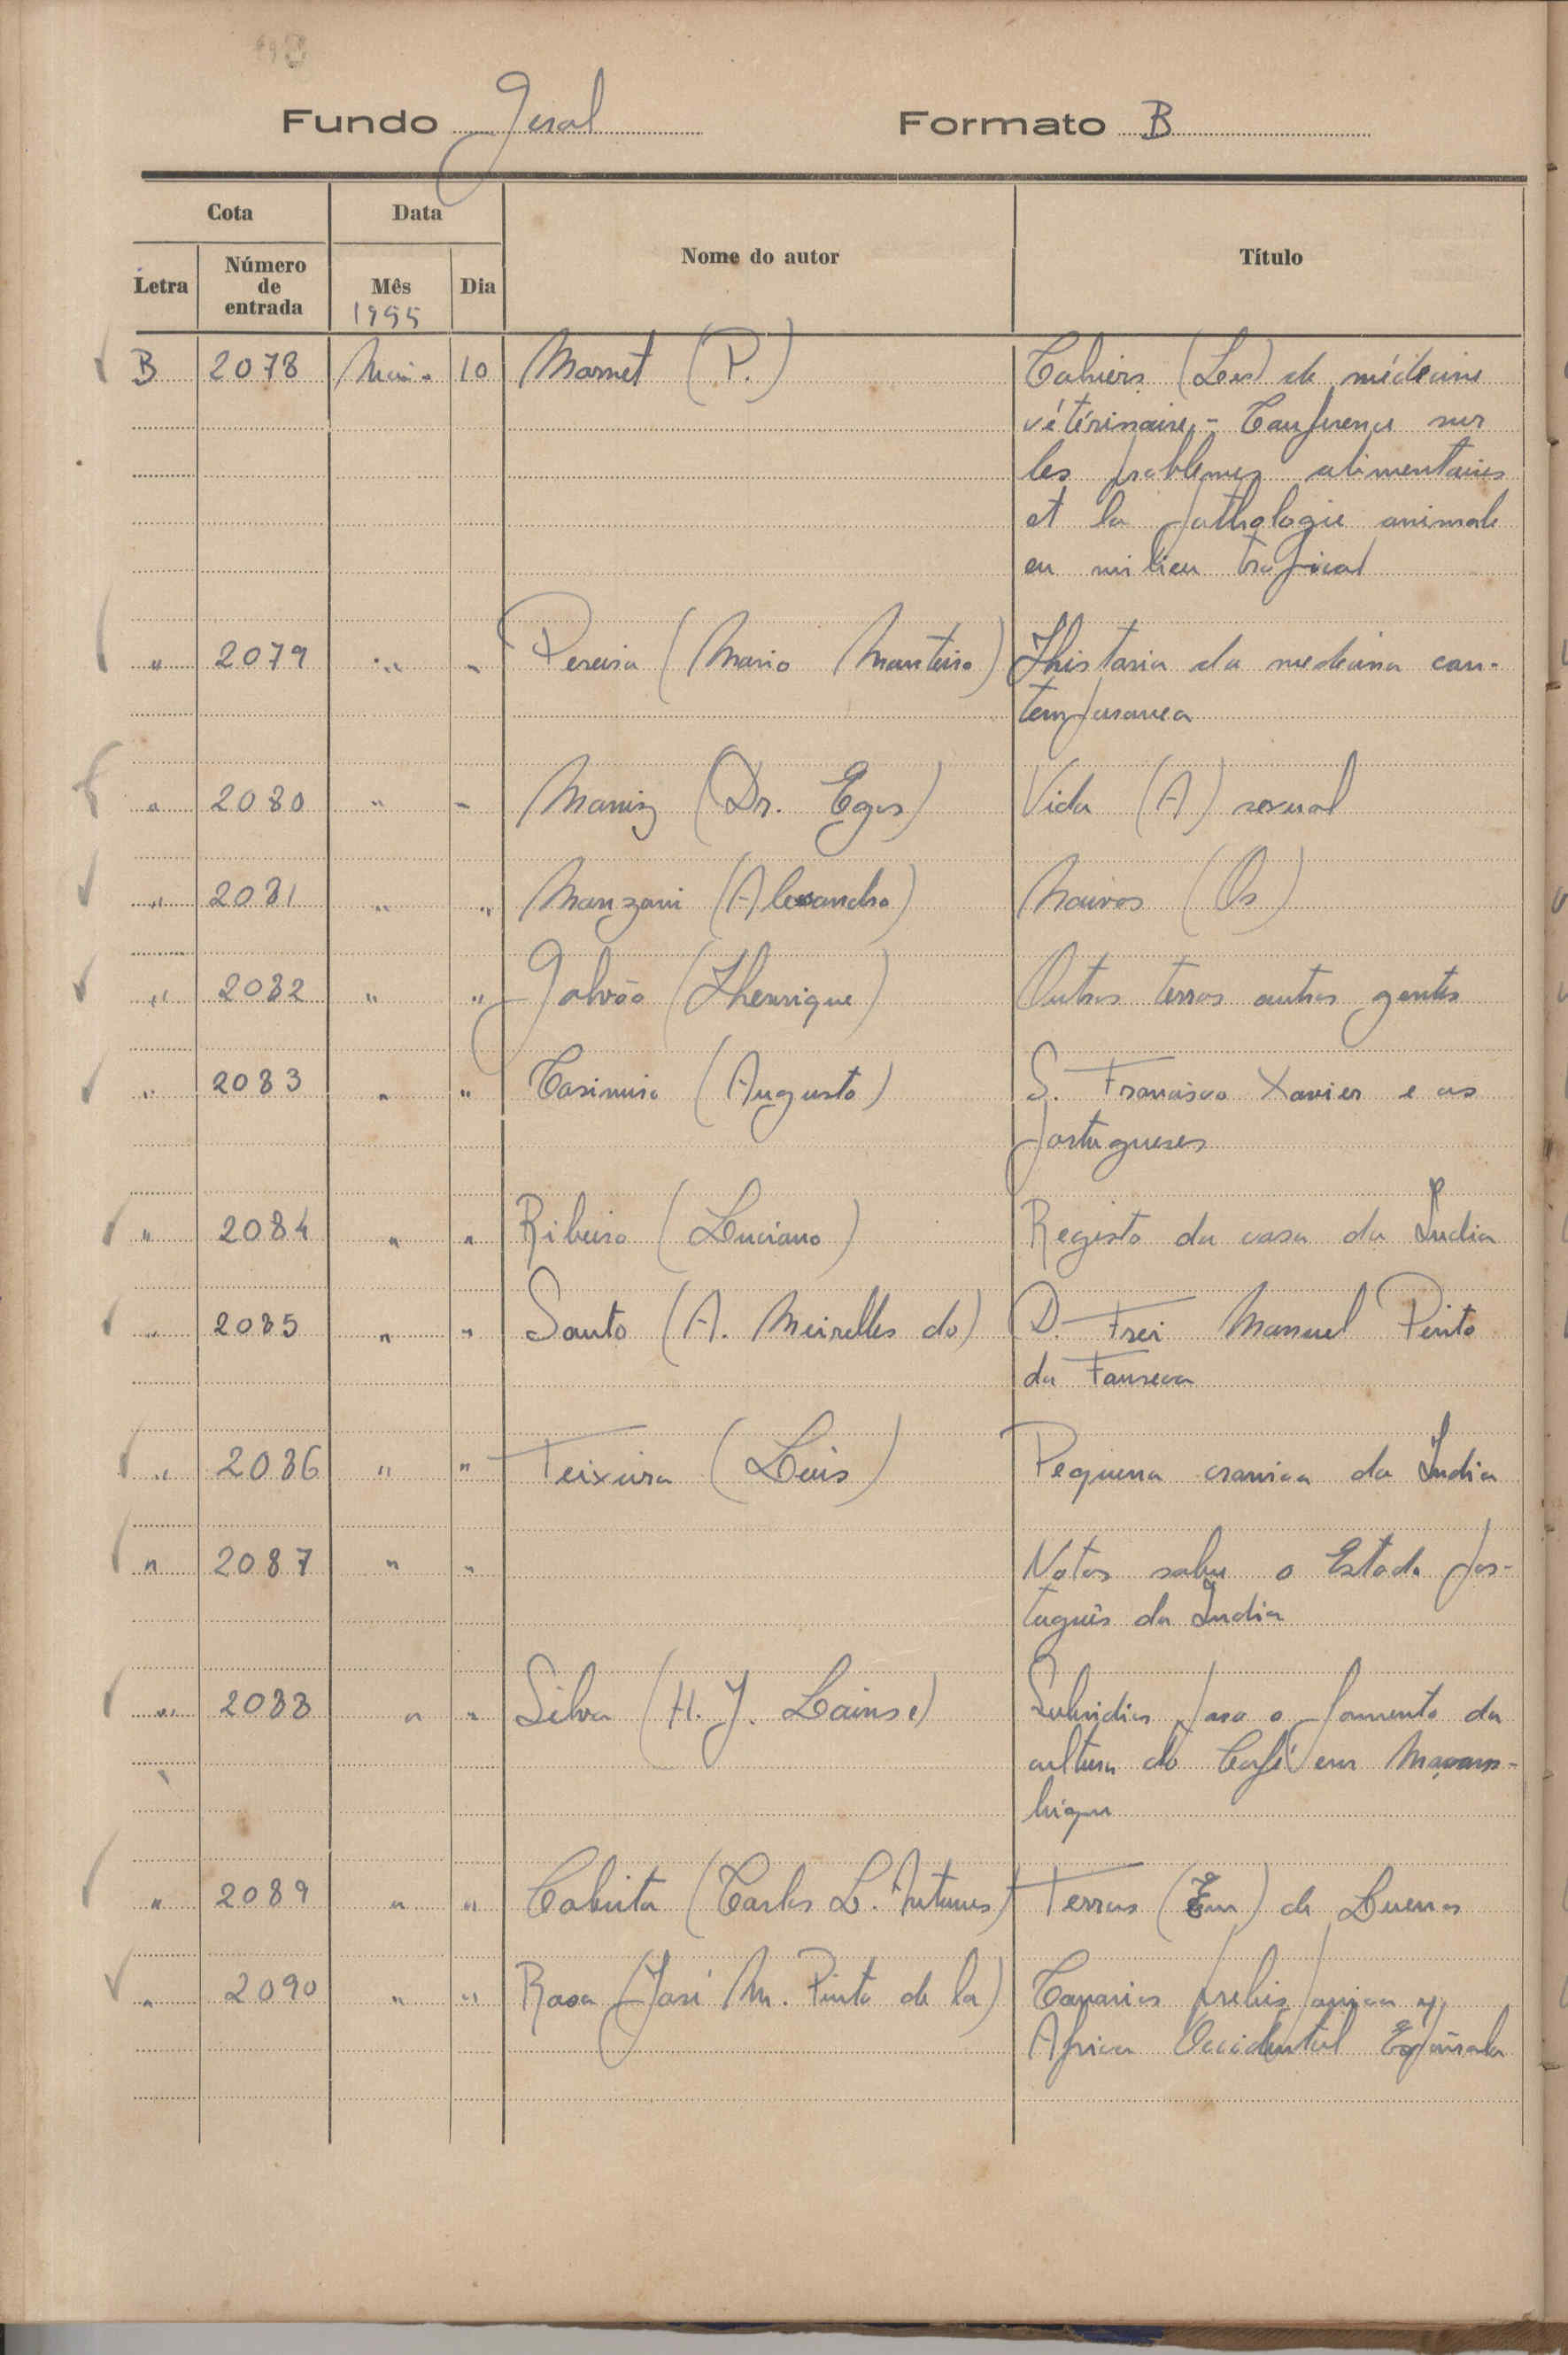 Fundo Geral Formato B
Cota Data Nome do autor Título
Letra Número de entrada Mês Dia
1955
B 2078 Maio 10 Mornet (P.) Cahiers (Les) de médecine
vétérinaire, - Conference sur
les problemes alimentaires
et la pathologie animale
en milieu tropical
" 2079 " " Pereira (Mario Monteiro) Historia da medicina con-
temporanea
" 2080 " " Moniz (Dr. Egas) Vida (A) sexual
" 2081 " " Manzoni (Alexandro) Noivos (Os)
" 2082 " " Galvão (Henrique) Outras terras outras gentes
" 2083 " " Casimiro (Augusto) S. Francisco Xavier e os
portugueses
" 2084 " " Ribeiro (Luciano) Registo da casa da Índia
" 2085 " " Souto (A. Meirelles do) D. Frei Manuel Pinto
da Fonseca
" 2086 " " Teixeira (Luis) Pequena cronica da Índia
" 2087 " " Notas sobre o Estado por-
tuguês da Índia
" 2088 " " Silva (H. J. Lains e) Subsidios para o fomento da
cultura do Café em Moçam-
bique
" 2089 " " Cabrita (Carlos L. Antunes) Terras (Em) de Luenas
" 2090 " " Rosa (José M. Pinto de la) Canarias prehispanica y
Africa Occidental Española